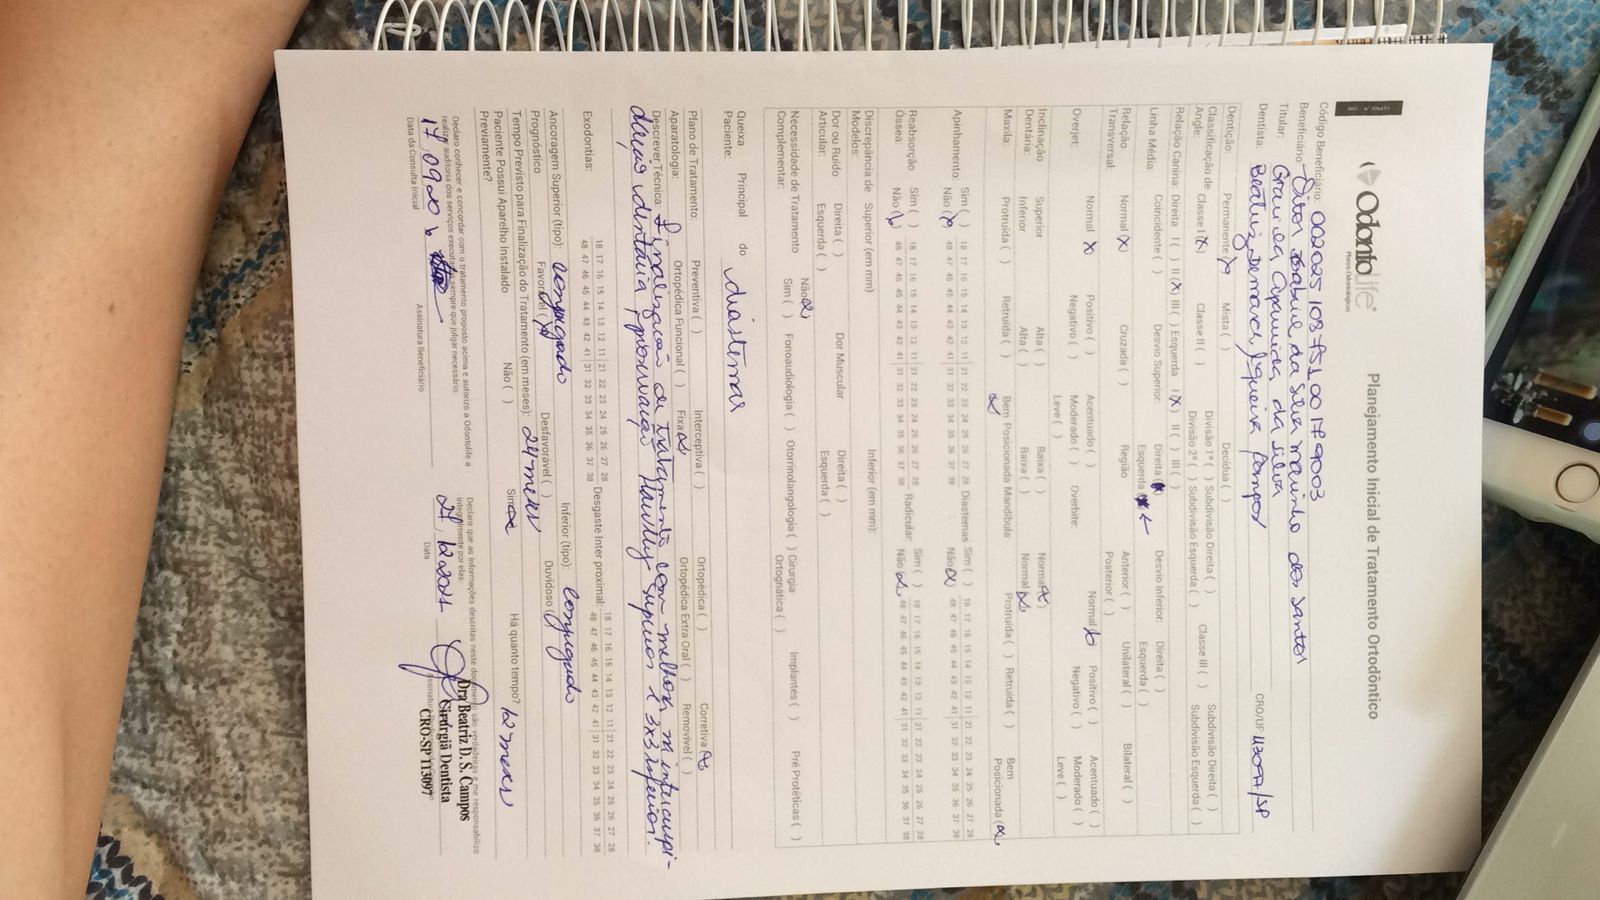 OdontoLife®
Planos Odontológicos
Planejamento Inicial de Tratamento Ortodôntico
Código Beneficiário: 002025108751001799003
Beneficiário: da Silva marinho dos Santos
Titular: Aparecida da Silva
Dentista: Beatriz Siqueira Campos CRO/UF
Dentição Permanente (x) Mista ( ) Decídua ( )
Classificação de Angle: Classe I (x) Classe II ( ) Divisão 1ª ( ) Subdivisão Direita ( ) Classe III ( ) Subdivisão Direita ( )
Divisão 2ª ( ) Subdivisão Esquerda ( ) Subdivisão Esquerda ( )
Relação Canina: Direita I ( ) II (x) III ( ) Esquerda I (x) II ( ) III ( )
Linha Média: Coincidente ( ) Desvio Superior: Direita Desvio Inferior: Direita ( )
Esquerda Esquerda ( )
Relação Transversal: Normal (x) Cruzada ( ) Região Anterior ( ) Unilateral ( ) Bilateral ( )
Posterior ( )
Overjet: Normal (x) Positivo ( ) Acentuado ( ) Overbite: Normal (x) Positivo ( ) Acentuado ( )
Negativo ( ) Moderado ( ) Negativo ( ) Moderado ( )
Leve ( ) Leve ( )
Inclinação Dentária: Superior Alta ( ) Baixa ( ) Normal (x)
Inferior Alta ( ) Baixa ( ) Normal (x)
Maxila: Protruida ( ) Retruida ( ) Bem Posicionada (x) Mandíbula Protruida ( ) Retruida ( ) Bem Posicionada (x)
Apinhamento: Sim ( ) 18 17 16 15 14 13 12 11 21 22 23 24 25 26 27 28 Diastemas Sim ( ) 18 17 16 15 14 13 12 11 21 22 23 24 25 26 27 28
Não (x) 48 47 46 45 44 43 42 41 31 32 33 34 35 36 37 38 Não (x) 48 47 46 45 44 43 42 41 31 32 33 34 35 36 37 38
Reabsorção Óssea: Sim ( ) 18 17 16 15 14 13 12 11 21 22 23 24 25 26 27 28 Radicular: Sim ( ) 18 17 16 15 14 13 12 11 21 22 23 24 25 26 27 28
Não (x) 48 47 46 45 44 43 42 41 31 32 33 34 35 36 37 38 Não (x) 48 47 46 45 44 43 42 41 31 32 33 34 35 36 37 38
Discrepância de Modelos: Superior (em mm) Inferior (em mm):
Dor ou Ruido Articular: Direita ( ) Dor Muscular Direita ( )
Esquerda ( ) Esquerda ( )
Necessidade de Tratamento Complementar: Não (x)
Sim ( ) Fonoaudiologia ( ) Otorrinolaringologia ( ) Cirurgia Ortognática ( ) Implantes ( ) Pré Protéticas ( )
Queixa Principal do Paciente: diastemas
Plano de Tratamento: Preventiva ( ) Interceptiva ( ) Ortopédica ( ) Corretiva (x)
Aparatologia: Ortopédica Funcional ( ) Fixa (x) Ortopédica Extra Oral ( ) Removível ( )
Descrever Técnica: Finalização de tratamento com melhora na intercuspi-
dação dentária, proservação Hawlley superior e 3x3 inferior.
Exodontias: 18 17 16 15 14 13 12 11 21 22 23 24 25 26 27 28 Desgaste Inter proximal: 18 17 16 15 14 13 12 11 21 22 23 24 25 26 27 28
48 47 46 45 44 43 42 41 31 32 33 34 35 36 37 38 48 47 46 45 44 43 42 41 31 32 33 34 35 36 37 38
Ancoragem Superior (tipo): conjugado Inferior (tipo): conjugado
Prognóstico Favorável (x) Desfavorável ( ) Duvidoso ( )
Tempo Previsto para Finalização do Tratamento (em meses): 24 meses
Paciente Possui Aparelho Instalado Previamente? Não ( ) Sim (x) Há quanto tempo? 12 meses
Declaro conhecer e concordar com o tratamento proposto acima e autorizo a Odontolife a
realizar auditoria dos serviços executados sempre que julgar necessário.
Declaro que as informações descritas neste documento são verdadeiras e me responsabilizo
integralmente por elas.
Data da Consulta Inicial
Assinatura Beneficiário
Data
Dra Beatriz D. S. Campos
Cirurgiã Dentista
CRO-SP 113097